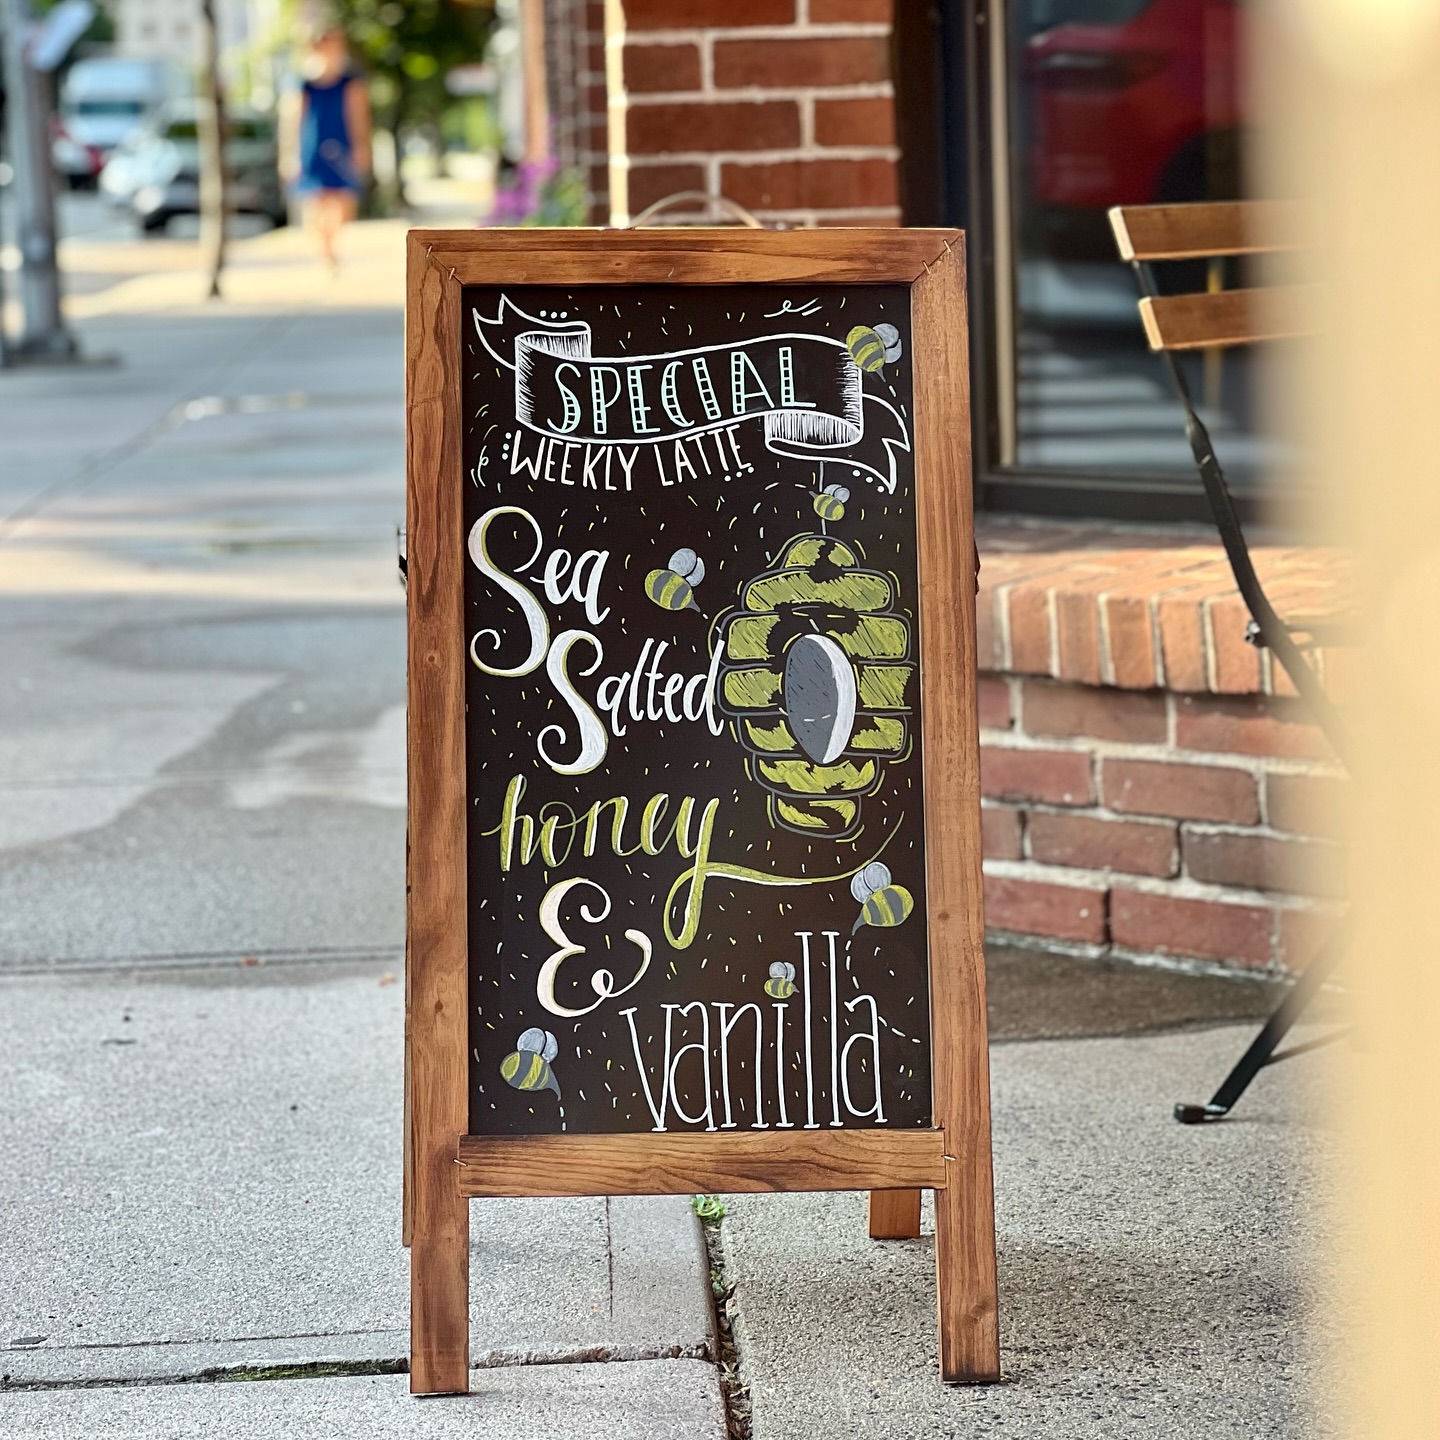 SPECIAL
WEEKLY LATTE
Sea
Salted
honey
&
vanilla